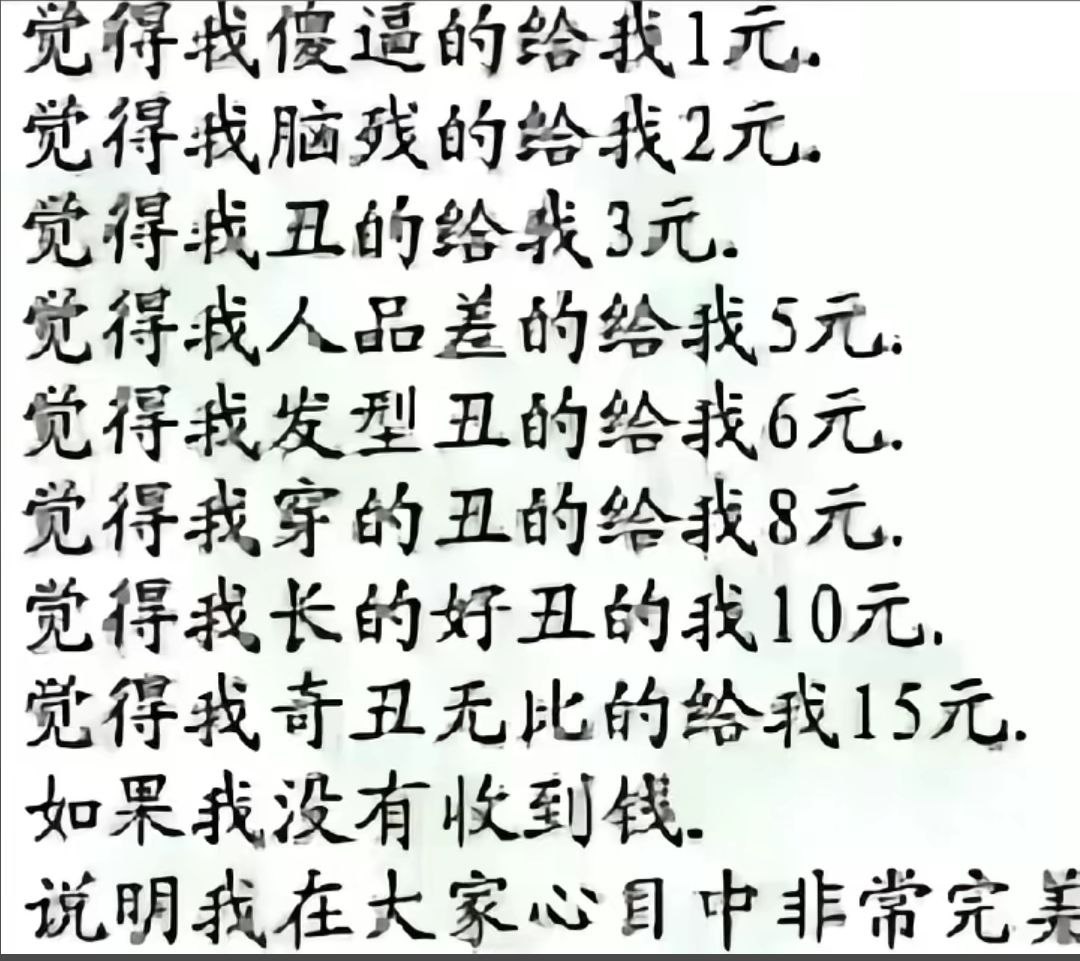 觉得我傻逼的给我1元.
觉得我脑残的给我2元.
觉得我丑的给我3元.
觉得我人品差的给我5元.
觉得我发型丑的给我6元.
觉得我穿的丑的给我8元.
觉得我长的好丑的我10元.
觉得我奇丑无比的给我15元.
如果我没有收到钱.
说明我在大家心目中非常完美